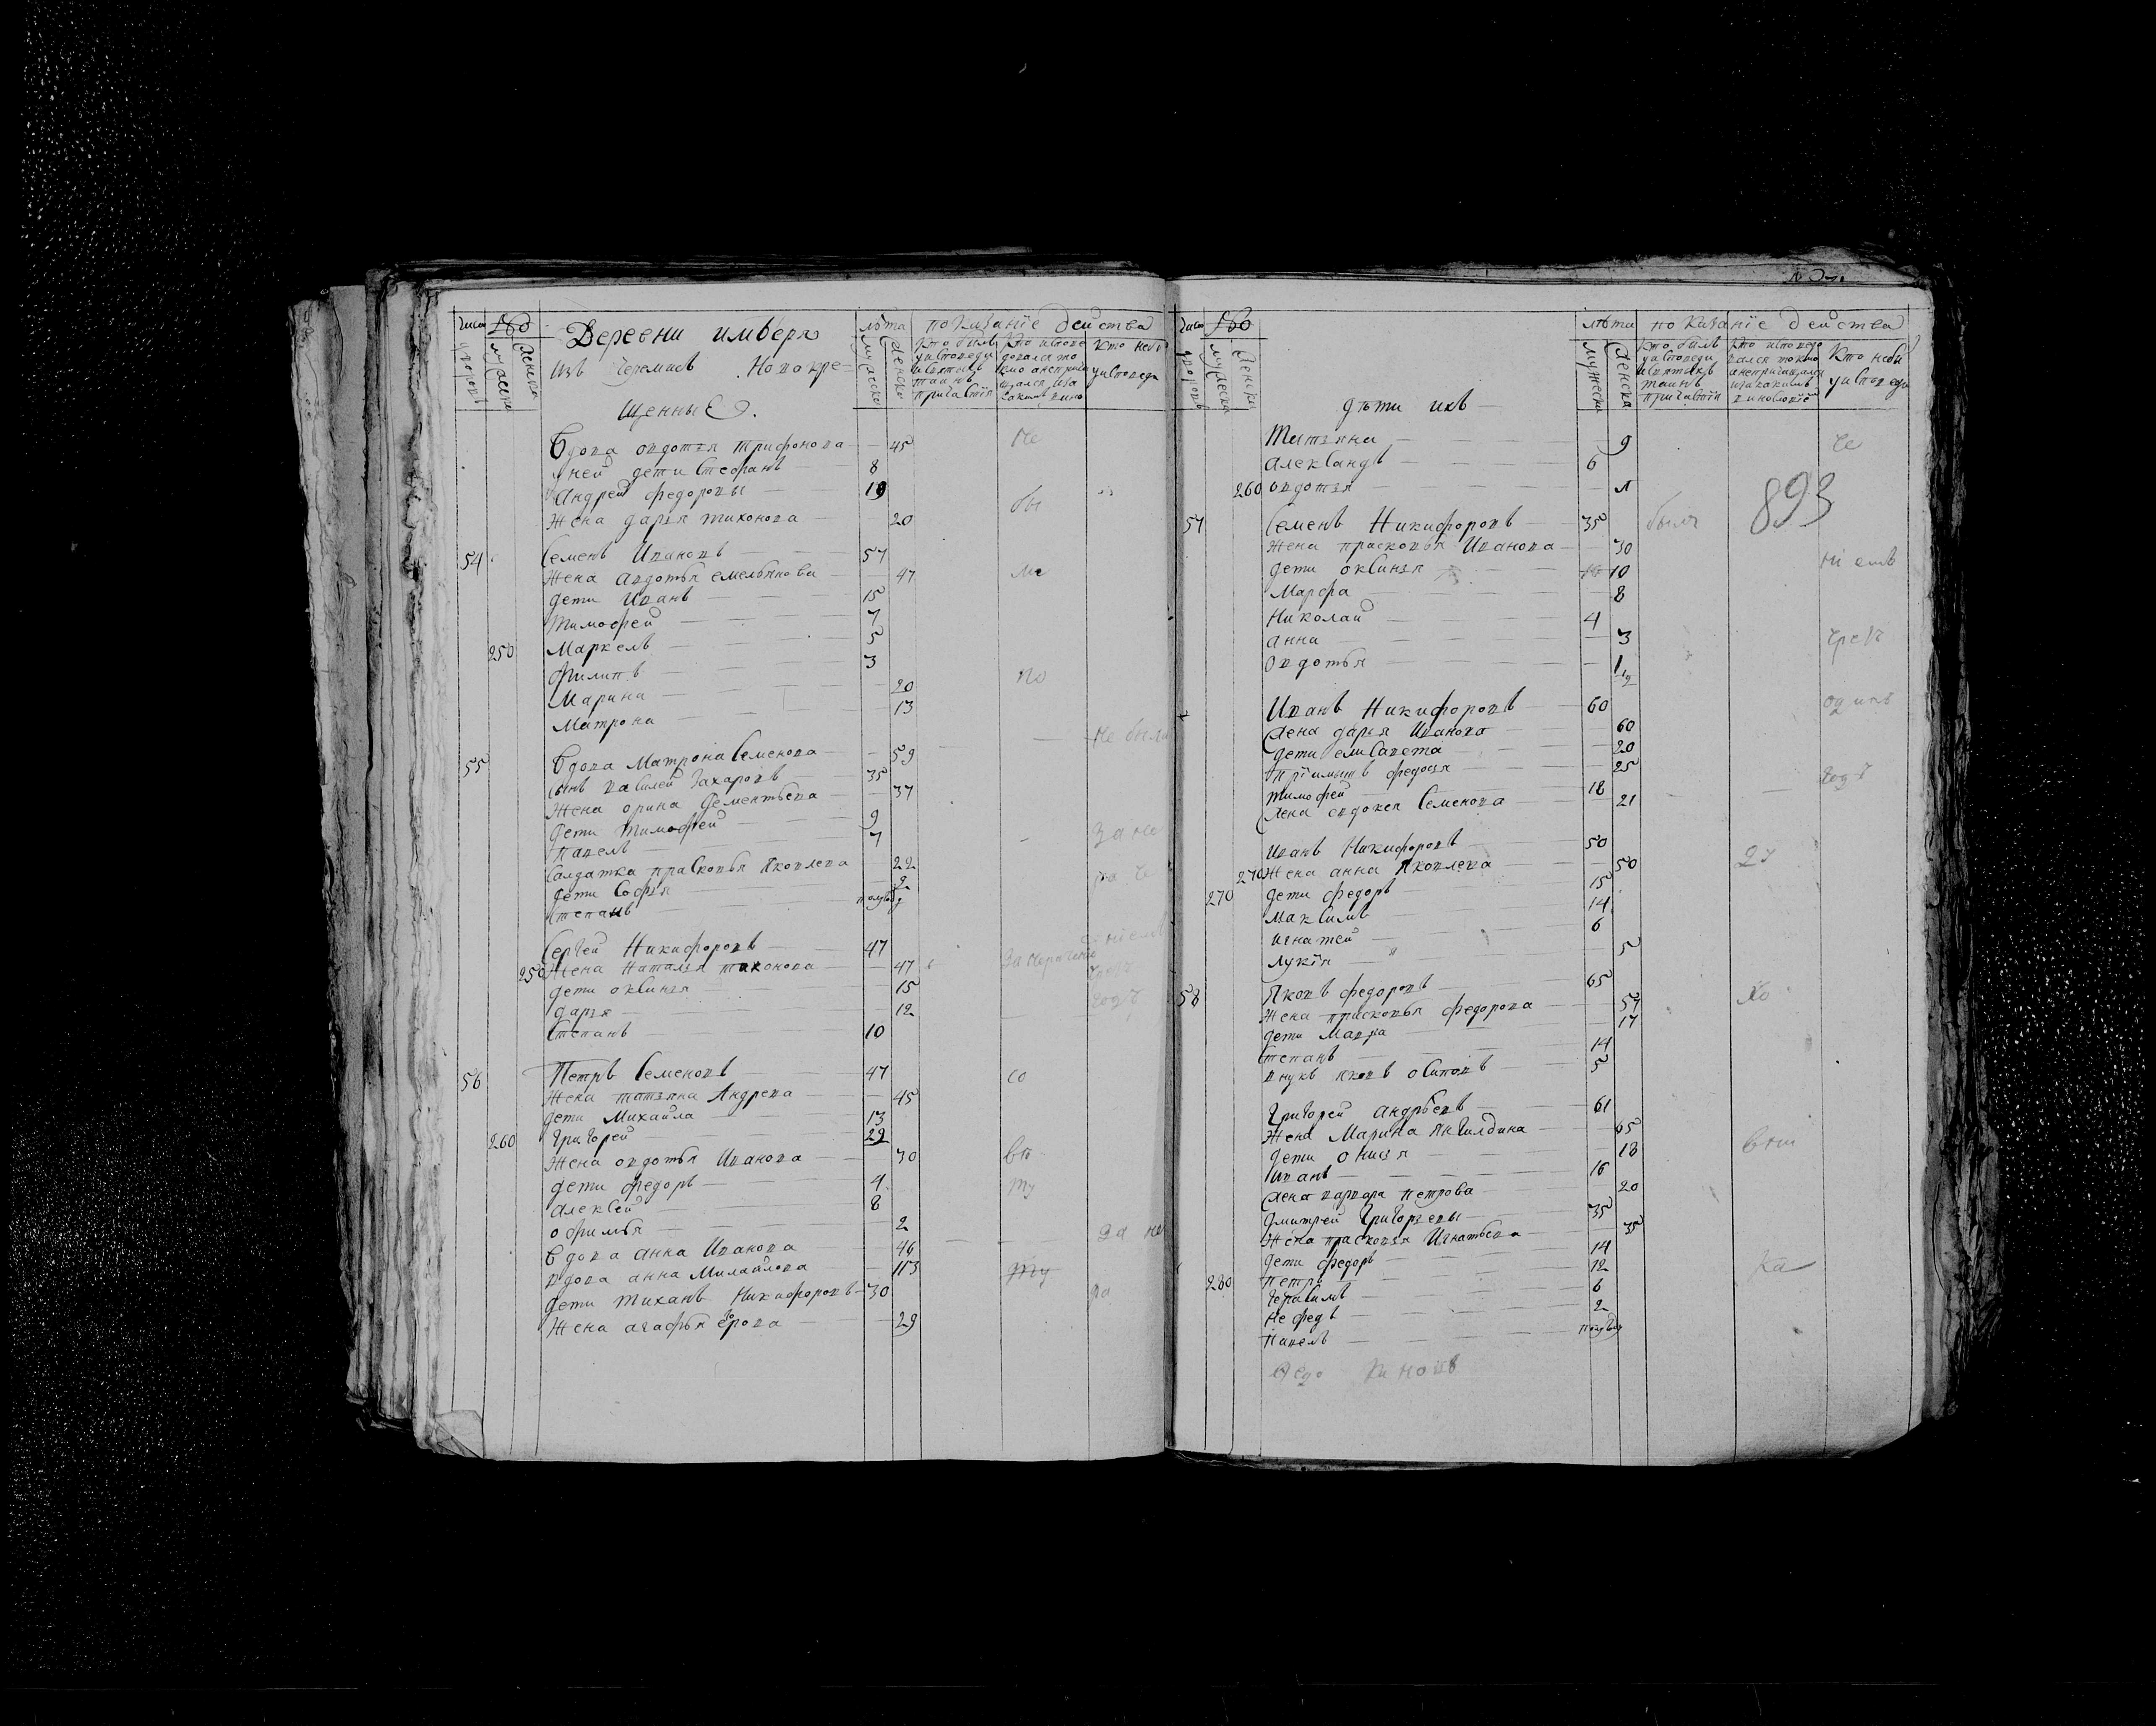 число
дворовъ
мужеска
женска
Деревни имберя
изъ черемисъ Новокре=
щенные
лѣта
мужеска
женска
показанїе действа
кто былъ
у исповеди
и святыхъ
таинъ
причастїя
кто испове
довался то
кмо а не прича
щался
кто небы
у исповеди
вдова овдотья трифонова — 45
у ней дети Стефанъ — 8
Андрей федоровы — 19
жена дарья тихонова — 20
54 Семенъ Ивановъ — 57
жена авдотья емельянова — 47
дети Иванъ — 15
тимофей — 7
250 Маркелъ — 5
филипъ — 3
Марина — 20
Матрона — 13
не были
55 вдова Матрона Семенова — 59
сынъ василей Захаровъ — 35
жена орина Дементьева — 37
дети тимофей — 9
павелъ — 7
за не
салдатка прасковья яковлева — 22
дети Софья — 2
степанъ — полугод
Сергей Никифоровъ — 47
250 жена наталья тихонова — 47
дети оксинья — 15
дарья — 12
степанъ — 10
годъ
56 Петръ Семеновъ — 47
со
жена татьяна Андрева — 45
дети Михайла — 13
260 григорей — 29
жена овдотья Иванова — 30
дети федоръ — 4
ту
алексей — 8
офимья — 2
за не
вдова анна Иванова — 46
вдова анна Михайлова — 113
ту
дети тиханъ Никифоровъ — 30
жена агафья Егрова — 29
число
дворовъ
мужеска
женска
дѣти ихъ —
лѣта
мужеска
женска
показанїе действа
кто былъ
у исповеди
и святыхъ
таинъ
причастїя
кто испове
вался токмо
а не причащался
и за какимъ
винословїе
кто небы
у исповеди
Татьяна — 9
не
александъ — 6
260 овдотья — 1
893
57 Семенъ Никифоровъ — 35
былъ
жена прасковья Иванова — 30
дети оксинья — 10
Марфа — 8
Николай — 4
анна — 3
овдотья — 1/2
Иванъ Никифоровъ — 60
жена дарья Иванова — 60
дети елисавета — 20
прїимышъ федосья — 25
тимофей — 18
годъ
жена евдокея Семенова — 21
Иванъ Никифоровъ — 50
270 жена анна яковлева — 50
270 дети федоръ — 15
максимъ — 14
игнатей — 6
лукїя — 5
58 яковъ федоровъ — 65
жена прасковья федорова — 57
дети Мавра — 17
степанъ — 14
внукъ яковъ осиповъ — 5
григорей андрѣевъ — 61
жена Марина янгилдина — 65
дети онисья — 18
иванъ — 16
жена варвара петрова — 20
дмитрей григорьевы — 35
жена прасковья Игнатьева — 35
дети федоръ — 14
280 петръ — 12
ка
герасимъ — 6
нефедъ — 2
павелъ — полугод